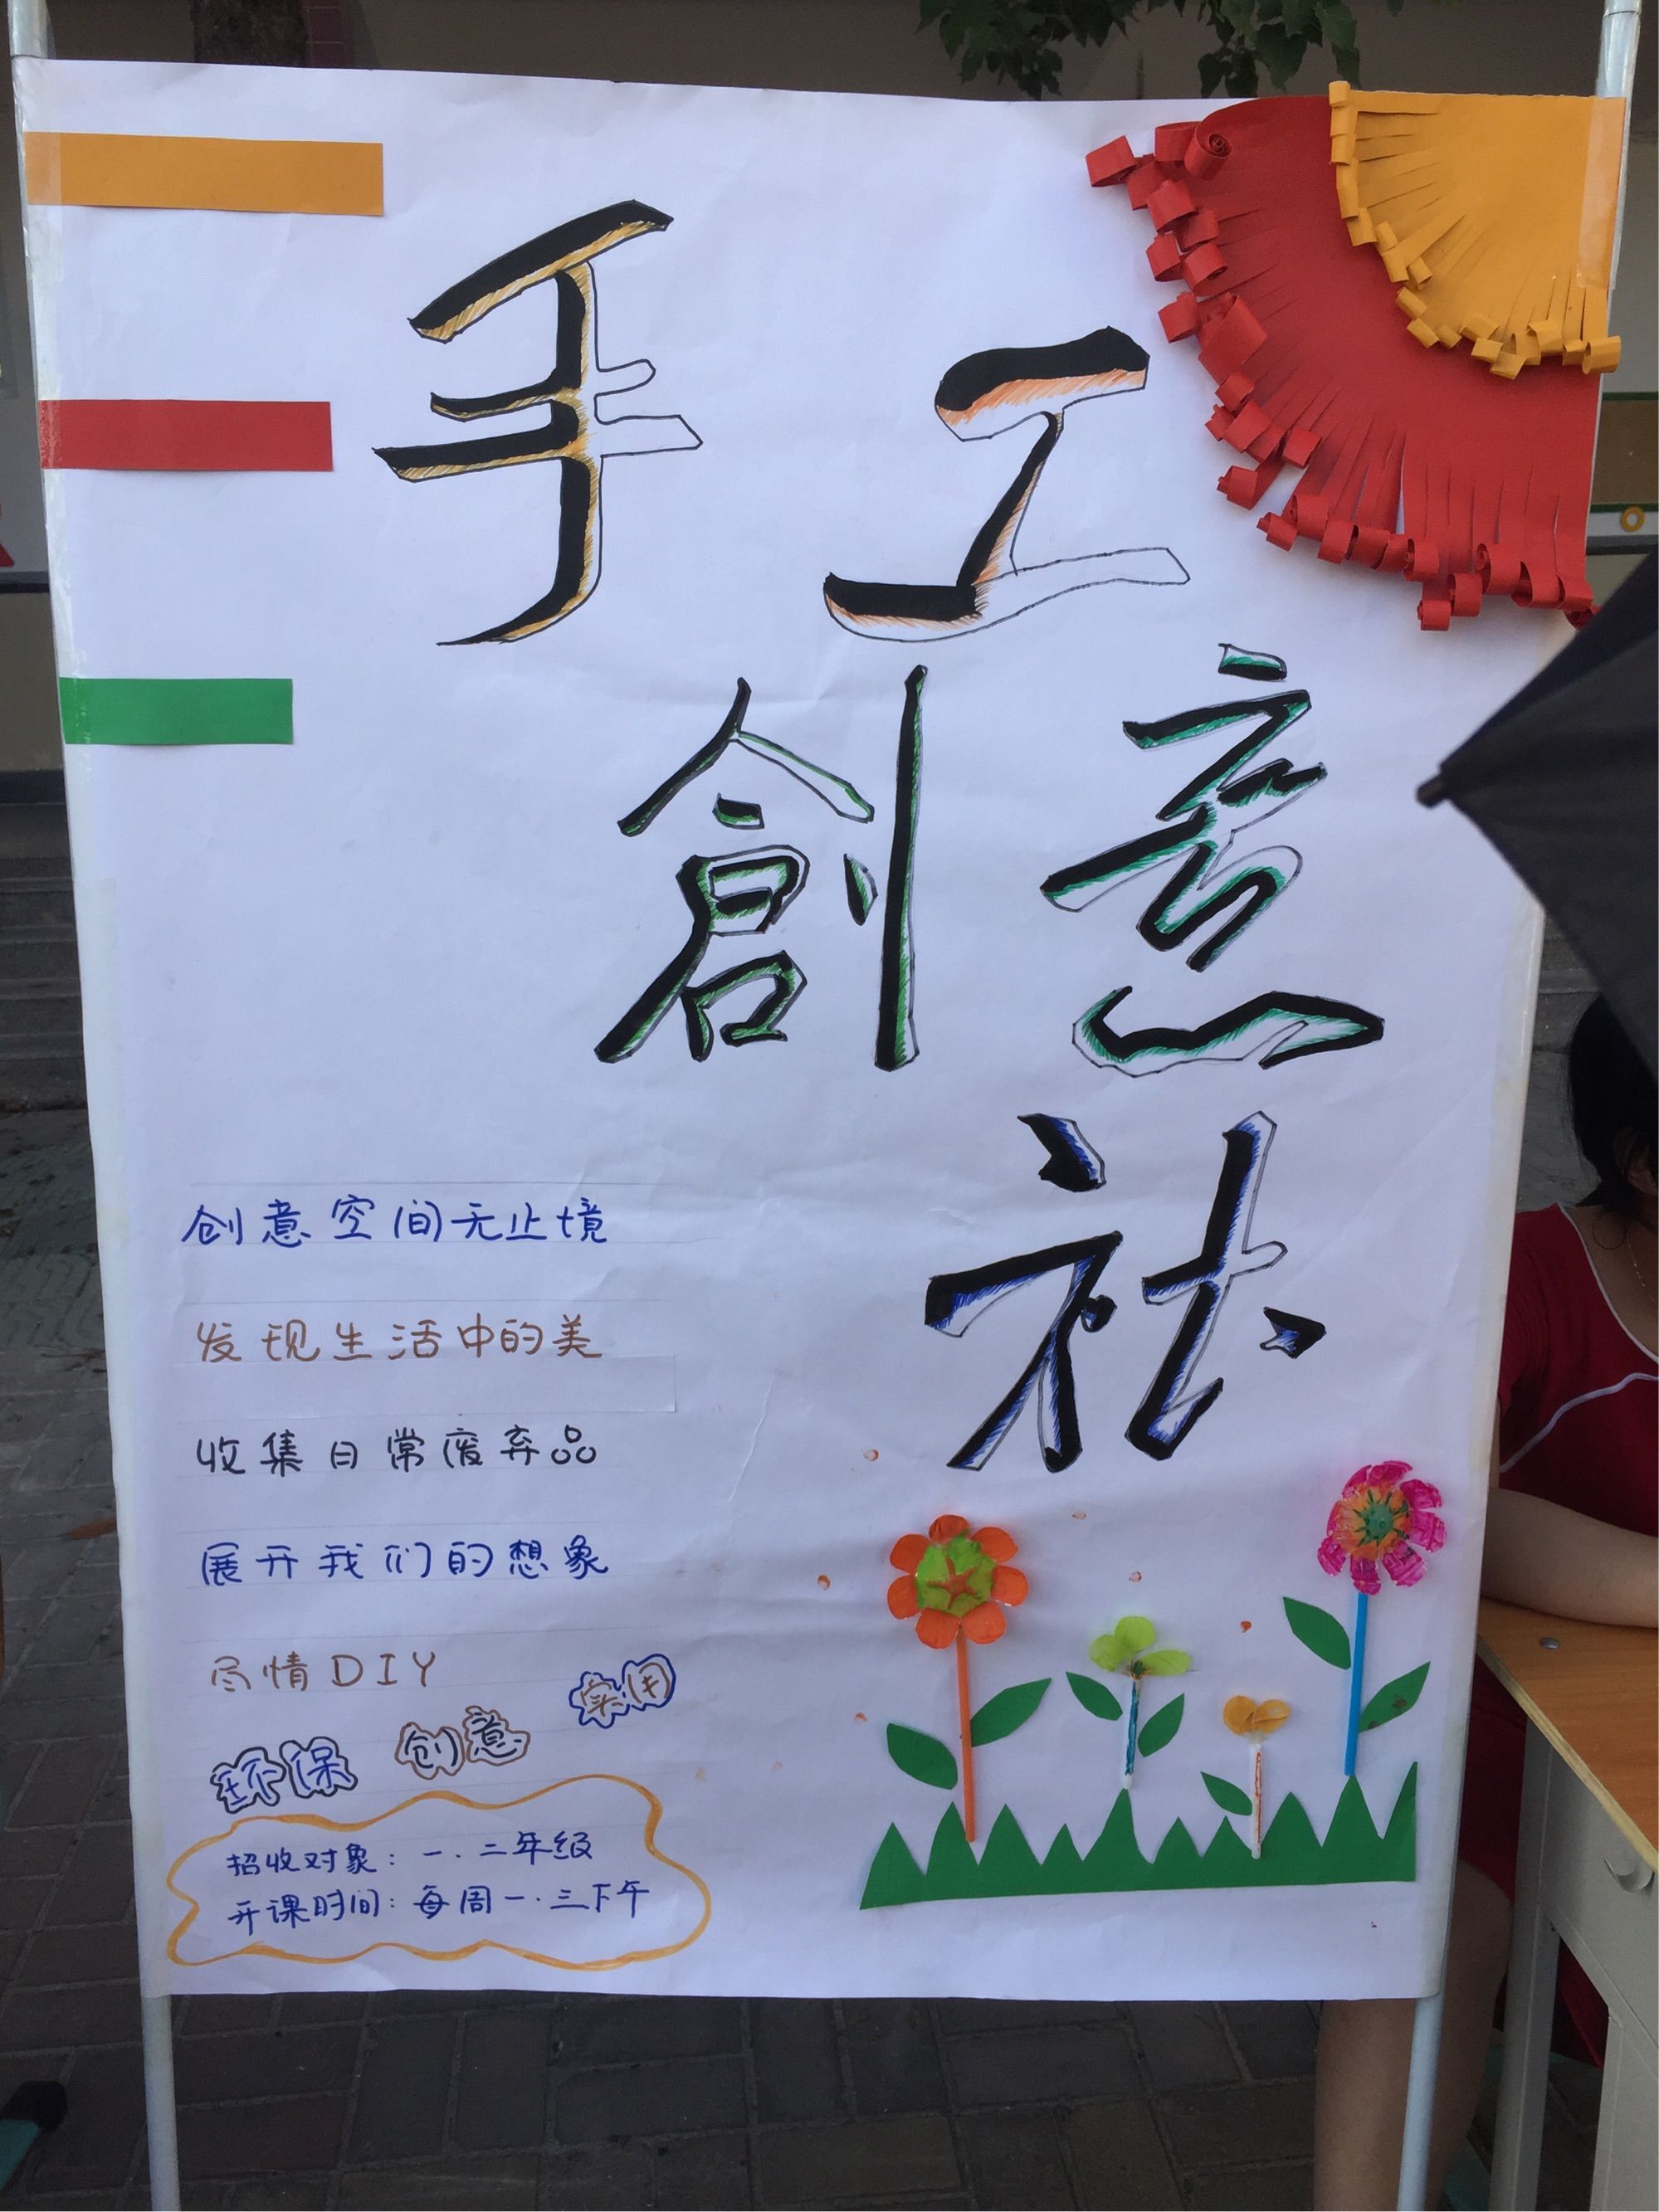 手工
創意
社
创意空间无止境
发现生活中的美
收集日常废弃品
展开我们的想象
尽情DIY
环保 创意 实用
招收对象：一.二年级
开课时间：每周一.三下午